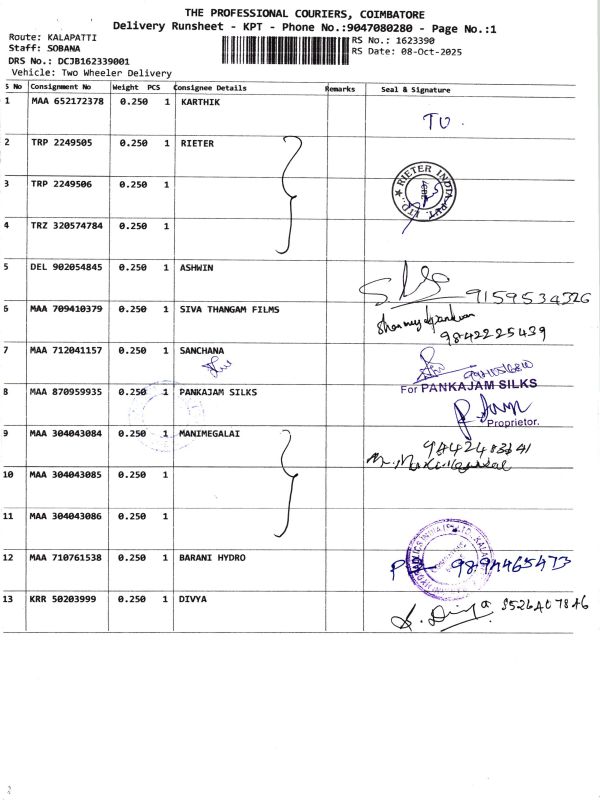 THE PROFESSIONAL COURIERS, COIMBATORE
Delivery Runsheet - KPT - Phone No.:9047080280 - Page No.:1
Route: KALAPATTI
Staff: SOBANA
DRS No.: DCJB162339001
Vehicle: Two Wheeler Delivery
RS No.: 1623390
RS Date: 08-Oct-2025
S No Consignment No Weight PCS Consignee Details Remarks Seal & Signature
1 MAA 652172378 0.250 1 KARTHIK
2 TRP 2249505 0.250 1 RIETER
3 TRP 2249506 0.250 1
RIETER INDIA PVT. LTD.
4 TRZ 320574784 0.250 1
5 DEL 902054845 0.250 1 ASHWIN
9159534326
6 MAA 709410379 0.250 1 SIVA THANGAM FILMS
9842225439
7 MAA 712041157 0.250 1 SANCHANA
8 MAA 870959935 0.250 1 PANKAJAM SILKS
For PANKAJAM SILKS
Proprietor.
9 MAA 304043084 0.250 1 MANIMEGALAI
10 MAA 304043085 0.250 1
11 MAA 304043086 0.250 1
12 MAA 710761538 0.250 1 BARANI HYDRO
9894465473
13 KRR 50203999 0.250 1 DIVYA